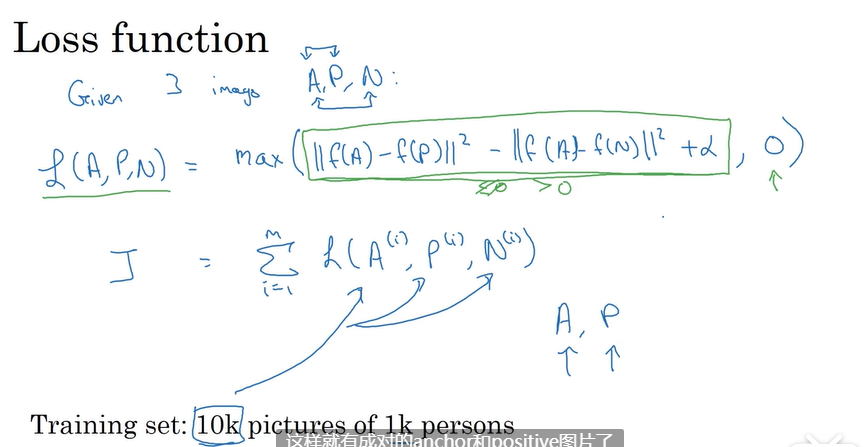 Loss function
Given 3 images A, P, N:
L(A, P, N) = max(||f(A) - f(P)||² - ||f(A) - f(N)||² + α, 0)
≤0 >0
J = Σ_{i=1}^{M} L(A^(i), P^(i), N^(i))
A, P
Training set: 10k pictures of 1k persons
这样就有成对的anchor和positive图片了